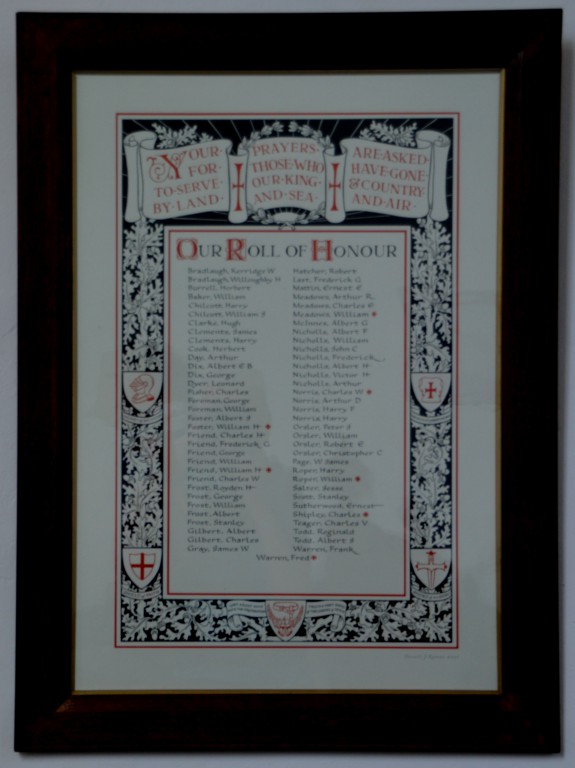 YOUR · PRAYERS · ARE · ASKED
FOR · THOSE · WHO HAVE · GONE
TO · SERVE · OUR · KING · & COUNTRY
BY · LAND · AND · SEA · AND · AIR ·
OUR ROLL OF HONOUR
Bradlaugh, Kerridge W
Bradlaugh, Willoughby H
Burrell, Herbert
Baker, William
Chilcott, Harry
Chilcott, William S
Clarke, Hugh
Clements, James
Clements, Harry
Cook, Herbert
Day, Arthur
Dix, Albert E B
Dix, George
Dyer, Leonard
Fisher, Charles
Foreman, George
Foreman, William
Foster, Albert S
Foster, William H
Friend, Charles H
Friend, Frederick G
Friend, George
Friend, William
Friend, William H
Friend, Charles W
Frost, Royden H
Frost, George
Frost, William
Frost, Albert
Frost, Stanley
Gilbert, Albert
Gilbert, Charles
Gray, James W
Hatcher, Robert
Last, Frederick G
Mattin, Ernest E
Meadows, Arthur R
Meadows, Charles E
Meadows, William
McInnes, Albert G
Nicholls, Albert F
Nicholls, William
Nicholls, John C
Nicholls, Frederick
Nicholls, Albert H
Nicholls, Victor H
Nicholls, Arthur
Norris, Charles W
Norris, Arthur D
Norris, Harry F
Norris, Harry
Orsler, Peter J
Orsler, William
Orsler, Robert E
Orsler, Christopher C
Page, W. James
Roper, Harry
Roper, William
Salter, Jesse
Scott, Stanley
Sutherwood, Ernest
Shipley, Charles
Teager, Charles V
Todd, Reginald
Todd, Albert S
Warren, Frank
Warren, Fred